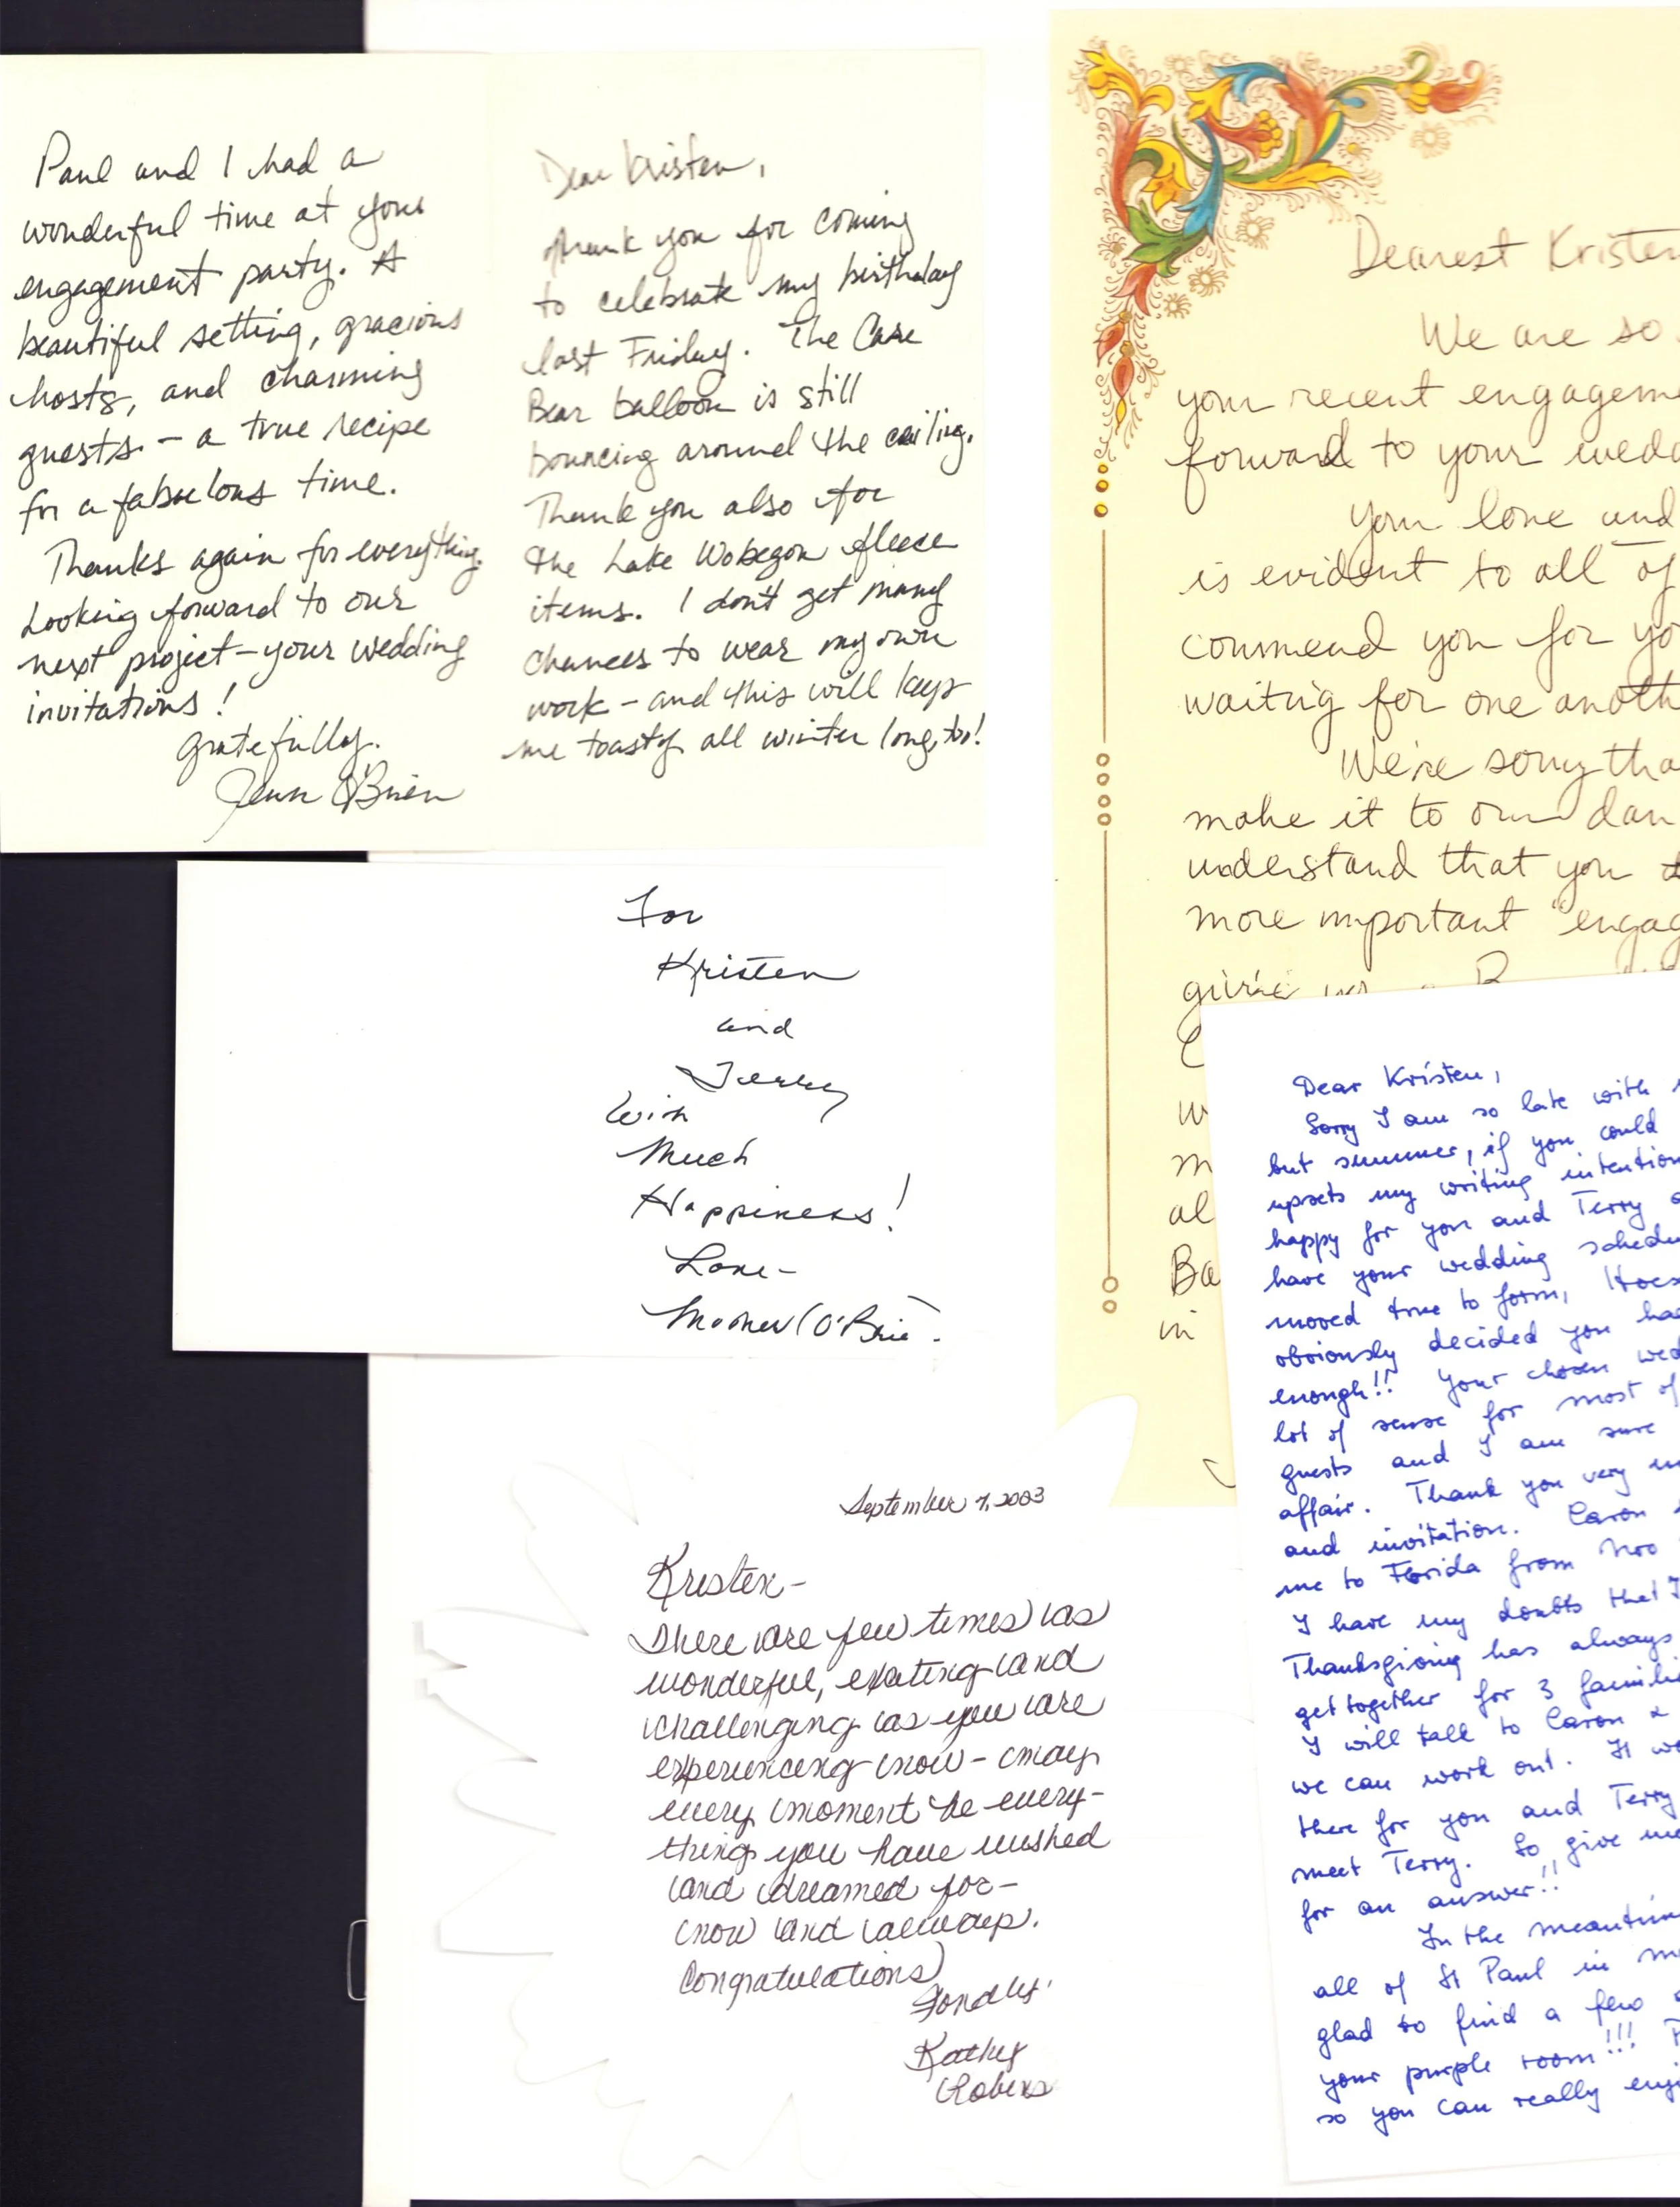 Dear Kristen,
Thank you for coming
to celebrate my birthday
last Friday. The Care
Bear balloon is still
bouncing around the ceiling.
Thank you also for
the Lake Wobegon fleece
items. I don't get many
chances to wear my own
work – and this will keep
me toasty all winter long, too!
Paul and I had a
wonderful time at your
engagement party. A
beautiful setting, gracious
hosts, and charming
guests – a true recipe
for a fabulous time.
Thanks again for everything.
Looking forward to our
next project – your wedding
invitations!
Gratefully,
Jenn O'Brien
For
Kristen
and
Terry
With
Much
Happiness!
Love –
O'Brien
September 7, 2003
Kristen –
There are few times as
wonderful, exciting and
challenging as you are
experiencing now – may
every moment be every-
thing you have wished
and dreamed for –
now and always.
Congratulations
Fondly,
Kathy
Robens
Dearest Kristen
We are so
your recent engageme
forward to your wedd
Your love and
is evident to all of
commend you for yo
waiting for one anoth
We're sorry tha
make it to our dan
understand that you
more important "engag
w
m
al
Ba
in
Dear Kristen,
Sorry I am so late with
but summer, if you could
upsets my writing intention
happy for you and Terry
have your wedding schedu
moved true to form,
obviously decided you ha
enough!! Your chosen wed
lot of sense for most of
guests and I am sure
affair. Thank you very m
and invitation. Caron
me to Florida from Nov
I have my doubts that I
Thanksgiving has always
get together for 3 famili
I will talk to Caron &
we can work out. It wo
there for you and Terry
meet Terry. So give me
for an answer!!
In the meantim
all of St Paul in m
glad to find a few
your purple room!!!
so you can really enj